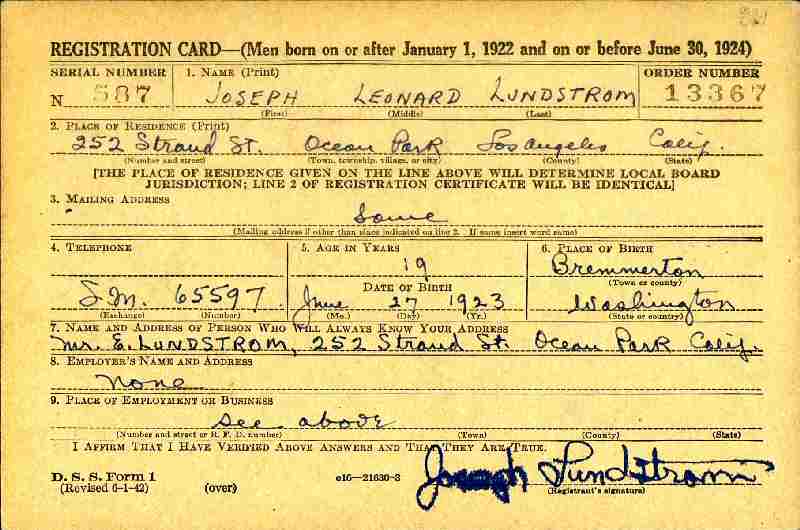 REGISTRATION CARD—(Men born on or after January 1, 1922 and on or before June 30, 1924)
SERIAL NUMBER 1. NAME (Print) ORDER NUMBER
N 587 JOSEPH LEONARD LUNDSTROM 13367
(First) (Middle) (Last)
2. PLACE OF RESIDENCE (Print)
252 Strand St. Ocean Park Los Angeles Calif.
(Number and street) (Town, township, village, or city) (County) (State)
[THE PLACE OF RESIDENCE GIVEN ON THE LINE ABOVE WILL DETERMINE LOCAL BOARD
JURISDICTION; LINE 2 OF REGISTRATION CERTIFICATE WILL BE IDENTICAL]
3. MAILING ADDRESS
Same
(Mailing address if other than place indicated on line 2. If same insert word same)
4. TELEPHONE 5. AGE IN YEARS 6. PLACE OF BIRTH
19 Bremmerton
DATE OF BIRTH (Town or county)
S.M. 65597 June 27 1923 Washington
(Exchange) (Number) (Mo.) (Day) (Yr.) (State or country)
7. NAME AND ADDRESS OF PERSON WHO WILL ALWAYS KNOW YOUR ADDRESS
Mr. E. LUNDSTROM, 252 Strand St. Ocean Park Calif.
8. EMPLOYER'S NAME AND ADDRESS
None
9. PLACE OF EMPLOYMENT OR BUSINESS
See above
(Number and street or R. F. D. number) (Town) (County) (State)
I AFFIRM THAT I HAVE VERIFIED ABOVE ANSWERS AND THAT THEY ARE TRUE.
D. S. S. Form 1 c16—21630-2 Joseph Lundstrom
(Revised 6-1-42) (over) (Registrant's signature)